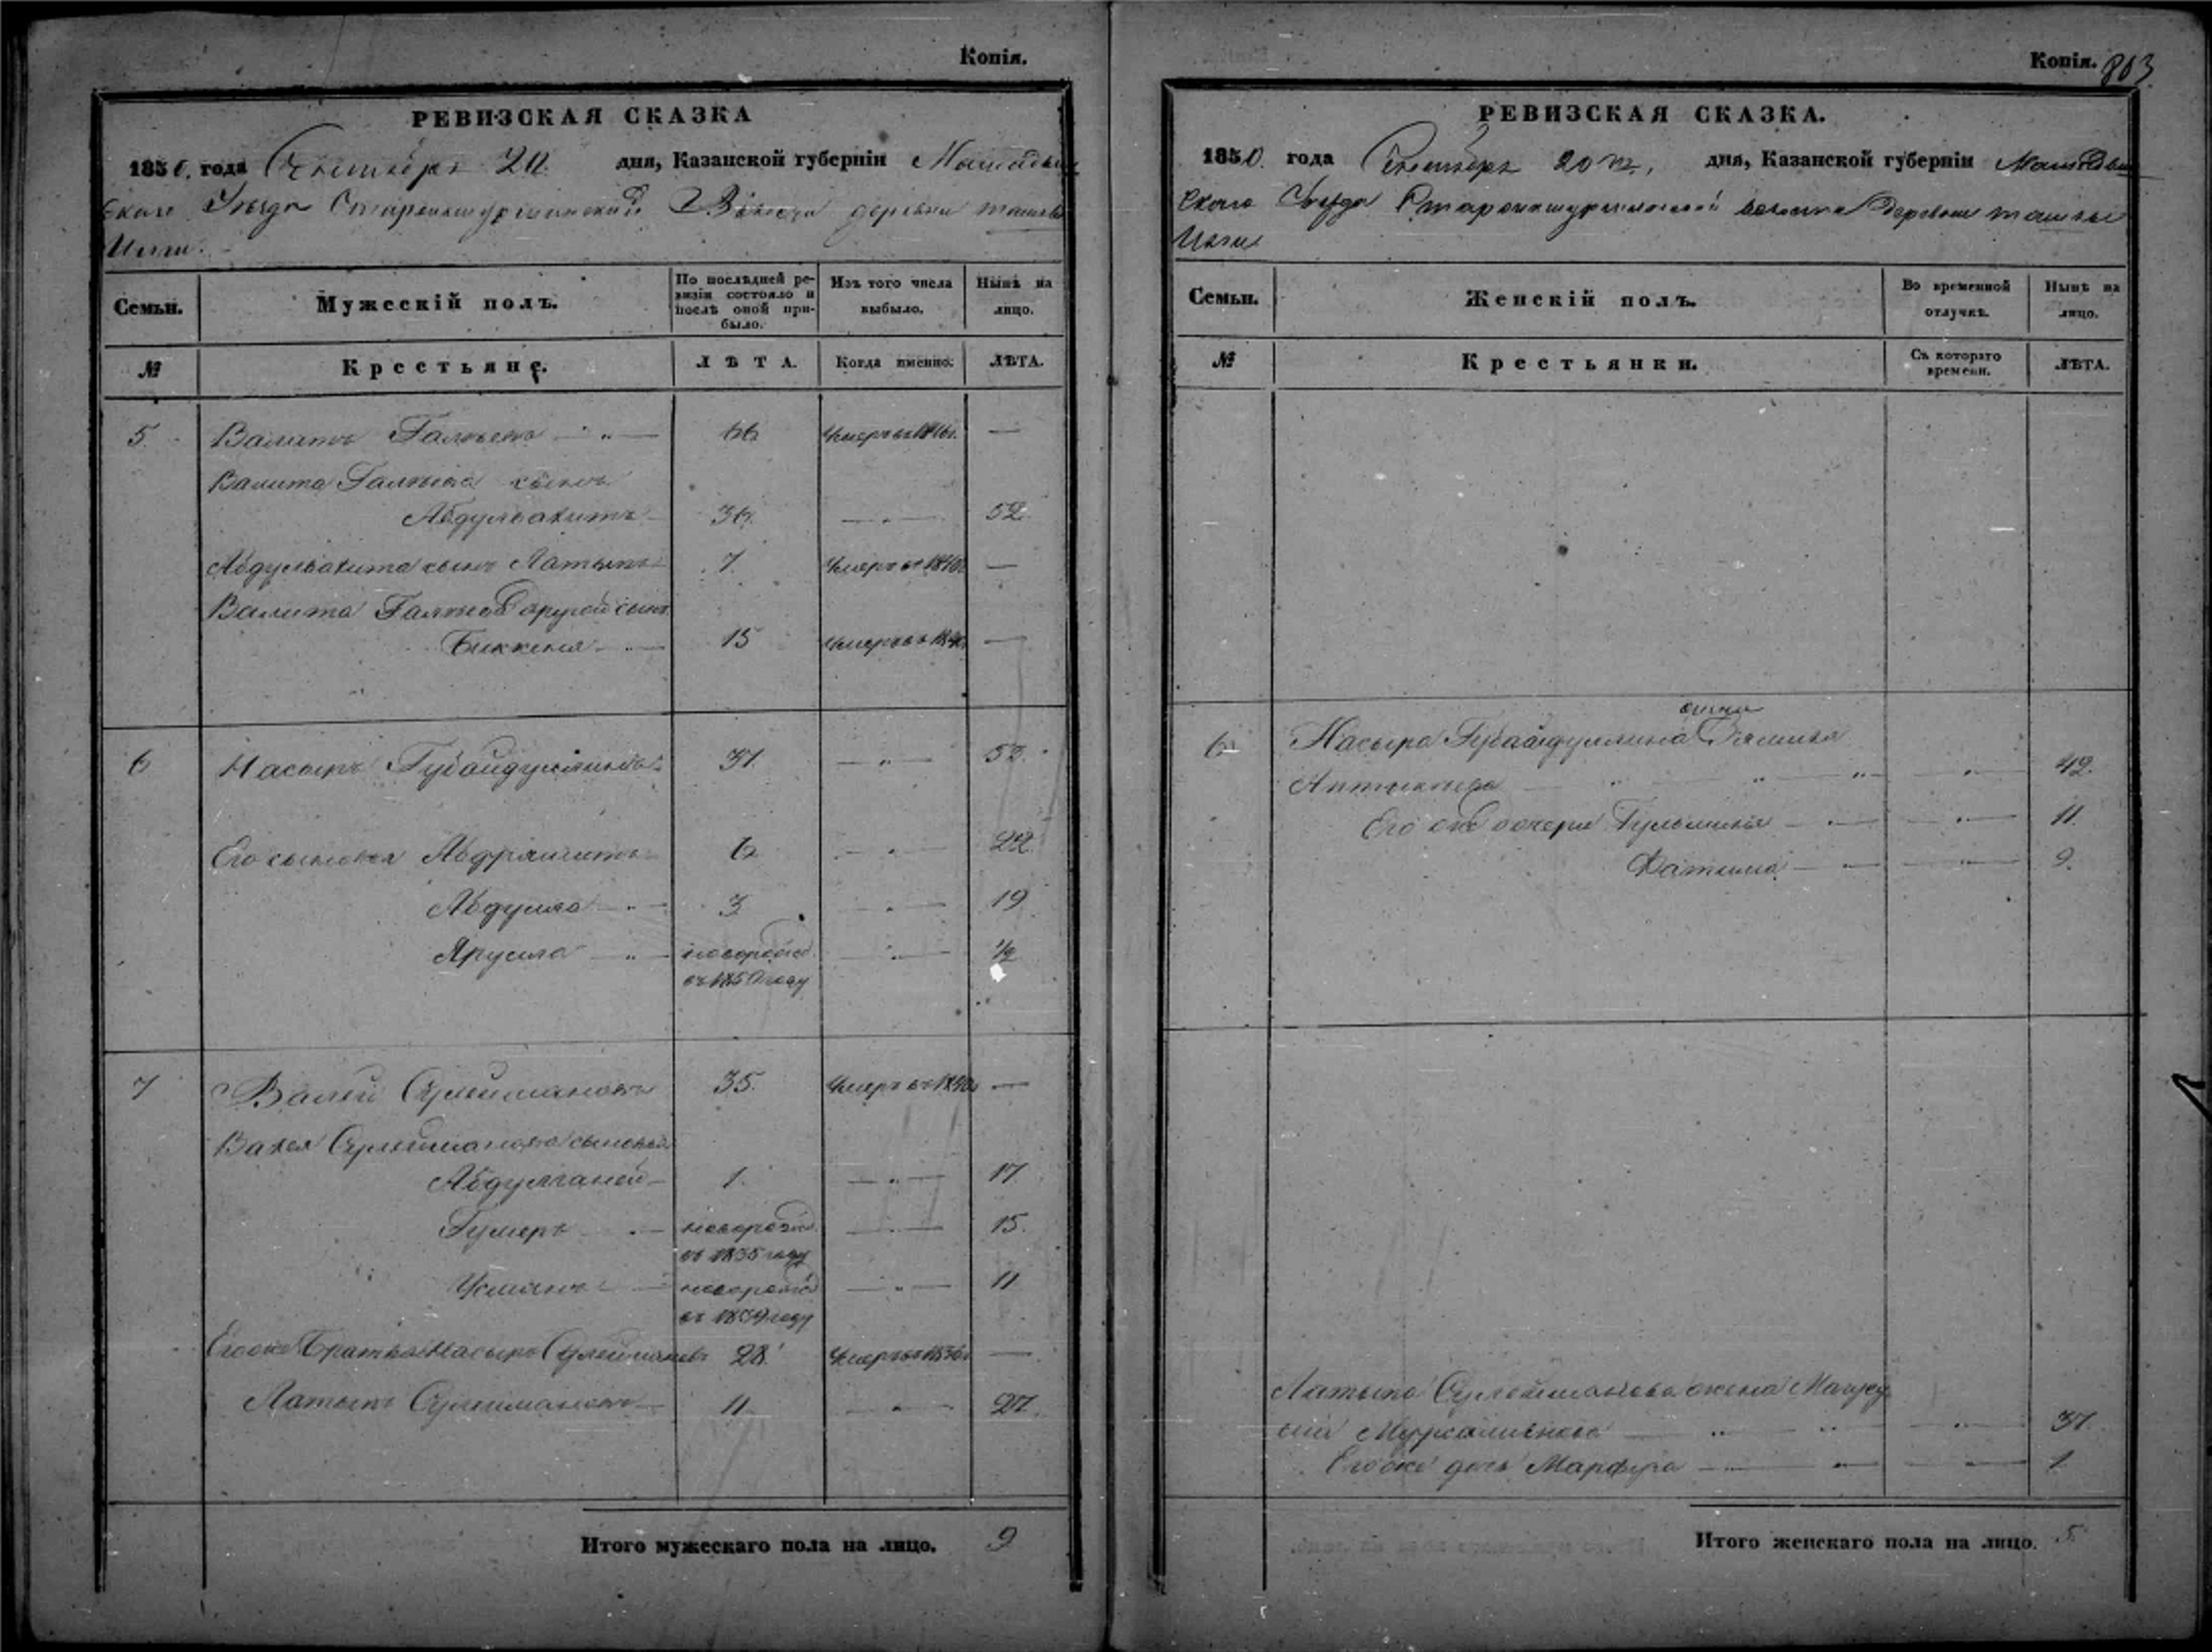 Копія.
РЕВИЗСКАЯ СКАЗКА
1850. года Октября 20 дня, Казанской губерніи Мамадыш
скаго Уѣзда Волости деревни
Семьи.
Мужескій полъ.
По послѣдней ре-
визіи состояло и
послѣ оной при-
было.
Изъ того числа
выбыло.
Нынѣ на
лицо.
№
Крестьяне.
ЛѢТА.
Когда именно.
ЛѢТА.
5. Валитъ 66 Умеръ въ —
Валита сынъ
Абдулвахитъ 36. — 52.
Абдулвахита сынъ Латыпъ 7. Умеръ въ —
Валита другой сынъ
Биккеня 15 Умеръ въ —
6 Насыръ Губайдуллинъ 37. — 53.
Его сыновья Абдряшитъ 6 — 22.
Абдулла 3 — 19
Ярулла новорожд. — 1/2
въ 1850 году
7 Валей Сулеймановъ 35. Умеръ въ —
Валея Сулейманова сыновья
Абдулганей 1. — 17.
Гумеръ новорожд. — 15.
въ 1835 году
Усманъ новорожд. — 11
въ 1839 году
Его же братья Насыръ Сулеймановъ 28. Умеръ въ 1836 —
Латыпъ Сулеймановъ 11 — 27.
Итого мужескаго пола на лицо. 9
Копія. 803
РЕВИЗСКАЯ СКАЗКА.
1850. года Октября 20 дня, Казанской губерніи Мамадыш
скаго Уѣзда волости деревни
Семьи.
Женскій полъ.
Во временной
отлучкѣ.
Нынѣ на
лицо.
№
Крестьянки.
Съ котораго
времени.
ЛѢТА.
6 Насыра Губайдуллина жена
42.
Его же дочери 11.
Фатима 9.
Латыпа Сулейманова жена
37.
Его же дочь Марфуга 1.
Итого женскаго пола на лицо. 5.